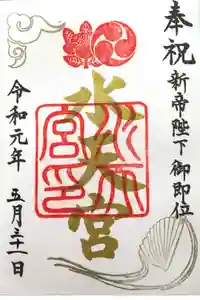 奉祝
新帝陛下御即位
水天宮
水天宮印
令和元年 五月三十一日